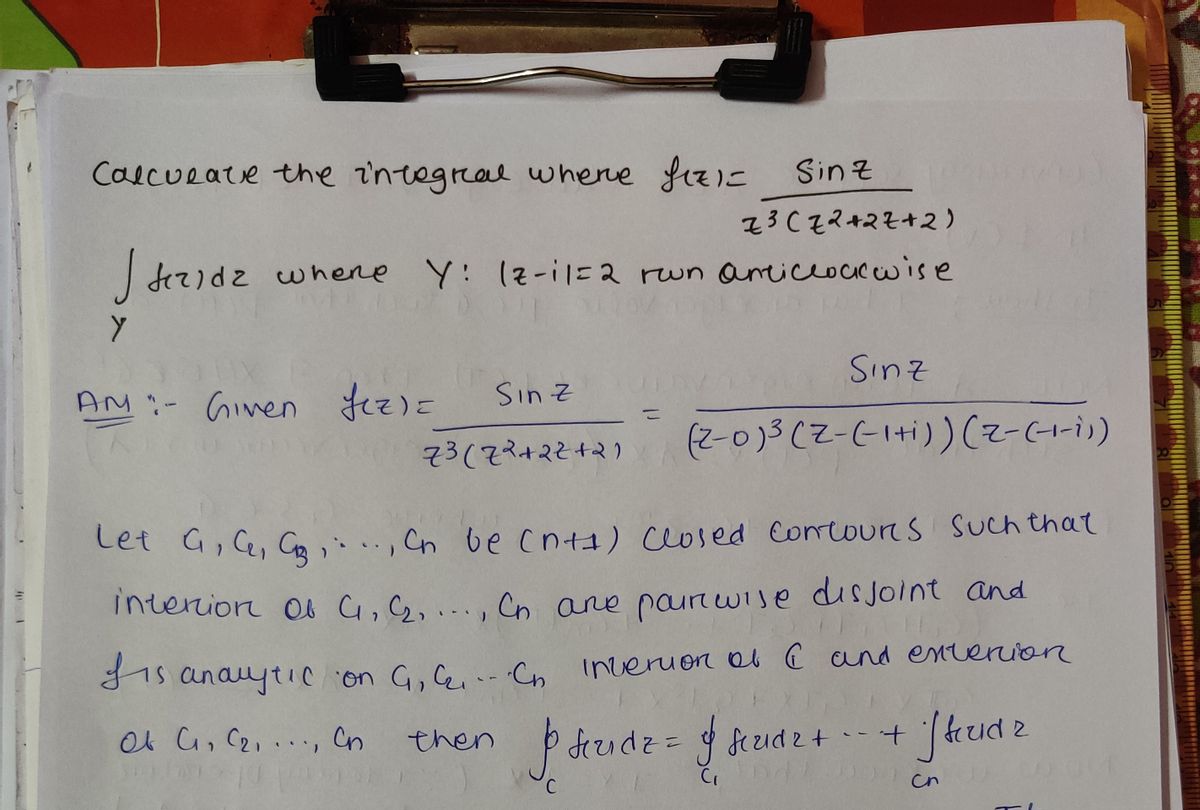 Calculate the integral where f(z) = Sin z / z³(z²+2z+2)
∫γ f(z)dz where γ: |z-i|=2 run anticlockwise
Ans :- Given f(z) = Sin z / z³(z²+2z+2) = Sin z / (z-0)³(z-(-1+i))(z-(-1-i))
Let C₁, C₂, C₃, ..., Cn be (n+1) closed contours such that
interior of C₁, C₂, ..., Cn are pairwise disjoint and
f is analytic on C₁, C₂, ... Cn interior of C and exterior
of C₁, C₂, ..., Cn then ∮C f(z)dz = ∮C₁ f(z)dz + ... + ∫Cn f(z)dz